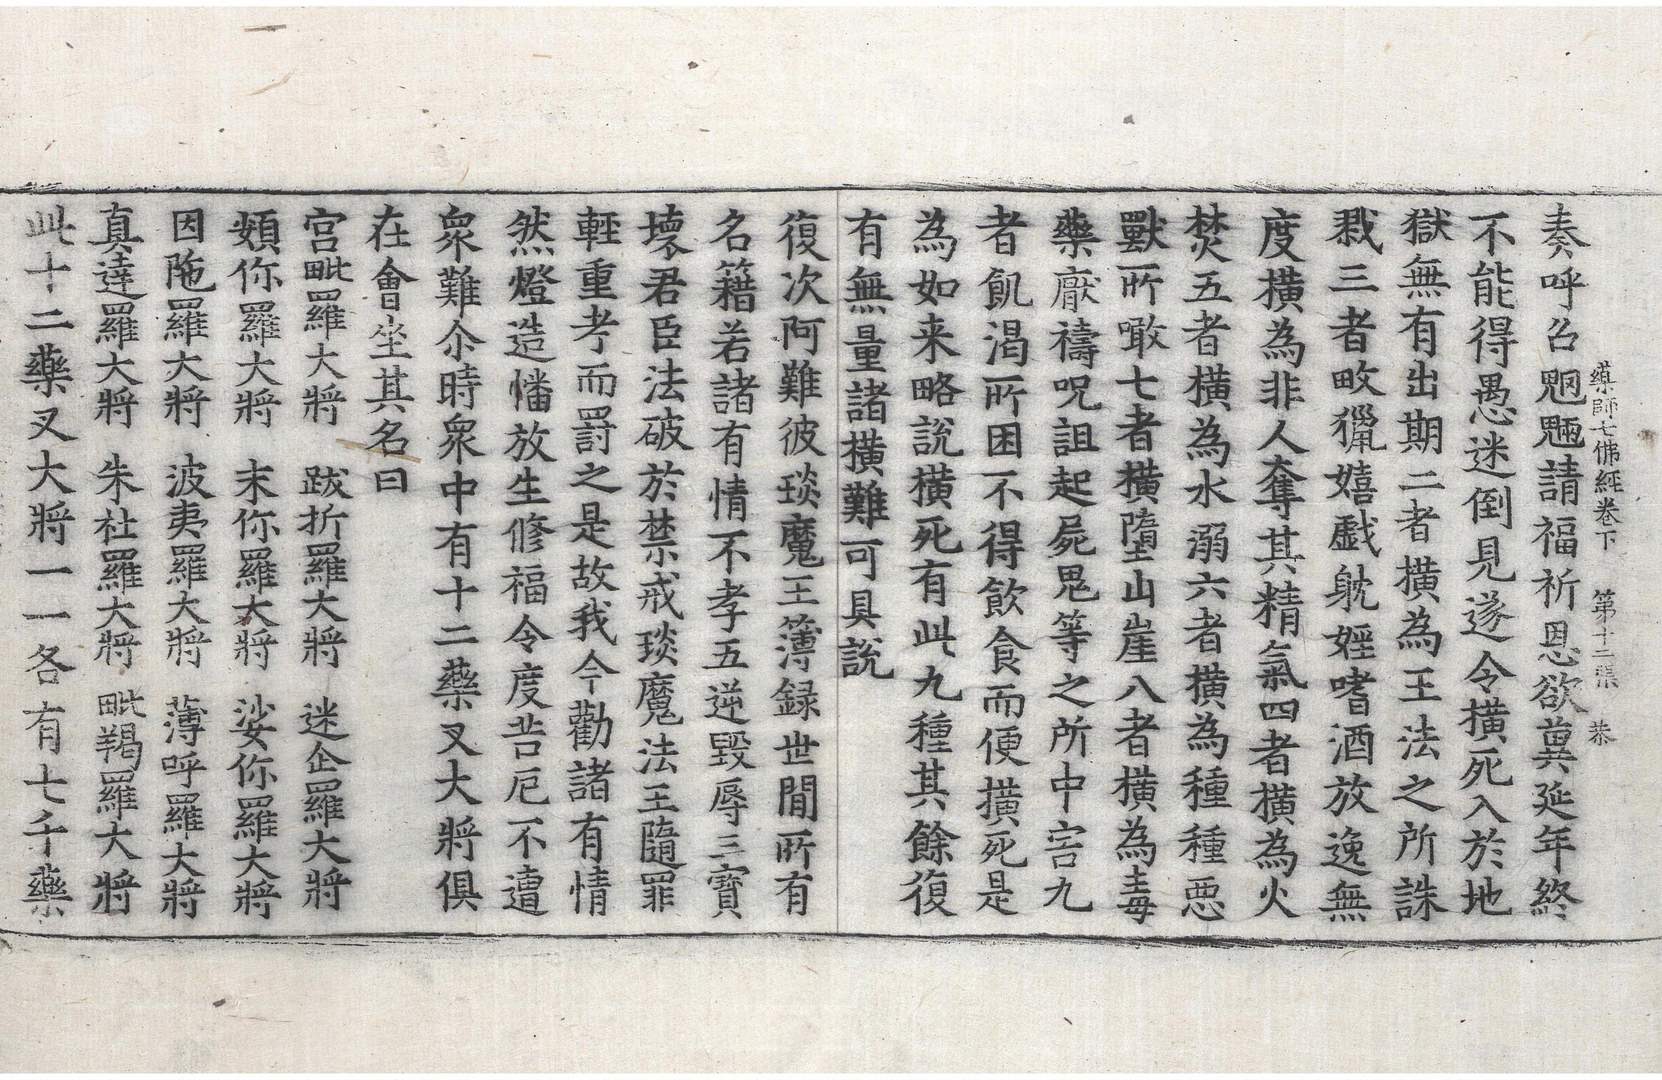 藥師七佛經卷下　第十二張　恭
奏呼召魍魎請福祈恩欲冀延年終
不能得愚迷倒見遂令橫死入於地
獄無有出期二者橫為王法之所誅
戮三者畋獵嬉戲躭婬嗜酒放逸無
度橫為非人奪其精氣四者橫為火
焚五者橫為水溺六者橫為種種惡
獸所噉七者橫墮山崖八者橫為毒
藥厭禱呪詛起屍鬼等之所中害九
者飢渴所困不得飲食而便橫死是
為如来略說橫死有此九種其餘復
有無量諸橫難可具說
復次阿難彼琰魔王簿録世間所有
名籍若諸有情不孝五逆毀辱三寶
壞君臣法破於禁戒琰魔法王隨罪
輕重考而罰之是故我今勸諸有情
然燈造幡放生修福令度苦厄不遭
衆難尒時衆中有十二藥叉大將俱
在會坐其名曰
宮毗羅大將　跋折羅大將　迷企羅大將
頞你羅大將　末你羅大將　娑你羅大將
因陁羅大將　波夷羅大將　薄呼羅大將
真達羅大將　朱社羅大將　毗羯羅大將
此十二藥叉大將一一各有七千藥